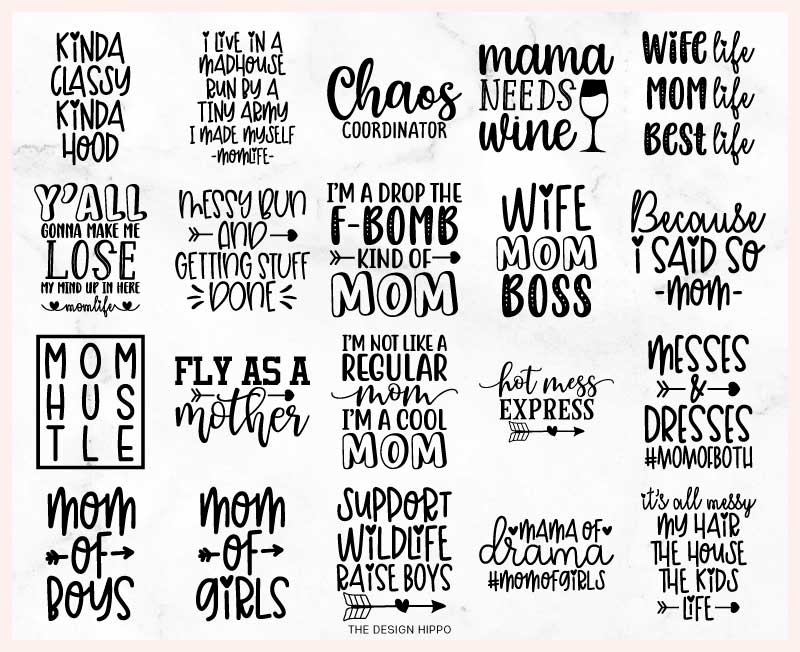 KINDA
CLASSY
KINDA
HOOD
I LIVE IN A
MADHOUSE
RUN BY A
TINY ARMY
I MADE MYSELF
-MOMLIFE-
Chaos
COORDINATOR
mama
NEEDS
wine
WIFE life
MOM life
BEST life
Y'ALL
GONNA MAKE ME
LOSE
MY MIND UP IN HERE
momlife
MESSY BUN
AND
GETTING STUFF
DONE
I'M A DROP THE
F-BOMB
KIND OF
MOM
WIFE
MOM
BOSS
Because
I SAID SO
-mom-
MOM
HUS
TLE
FLY AS A
mother
I'M NOT LIKE A
REGULAR
mom
I'M A COOL
MOM
hot mess
EXPRESS
MESSES
&
DRESSES
#MOMOFBOTH
MOM
OF
BOYS
MOM
OF
GIRLS
SUPPORT
WILDLIFE
RAISE BOYS
MAMA OF
drama
#MOMOFGIRLS
it's all messy
MY HAIR
THE HOUSE
THE KIDS
LIFE
THE DESIGN HIPPO